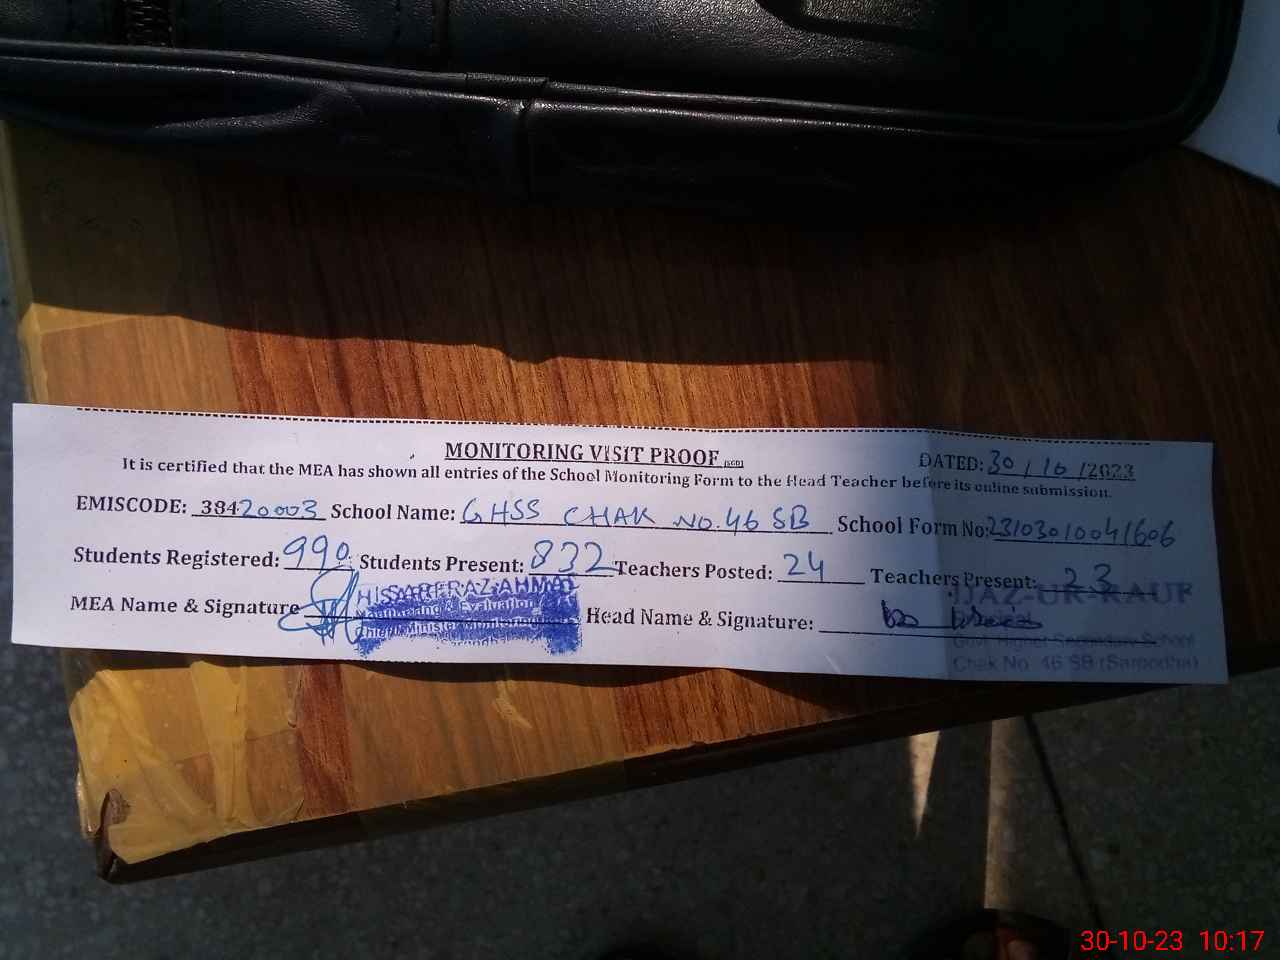 MONITORING VISIT PROOF (SGD) DATED: 30/10/2023
It is certified that the MEA has shown all entries of the School Monitoring Form to the Head Teacher before its online submission.
EMISCODE: 38420003 School Name: GHSS CHAK NO.46 SB School Form No: 23103010041606
Students Registered: 990 Students Present: 832 Teachers Posted: 24 Teachers Present: 23
MEA Name & Signature Head Name & Signature:
Monitoring & Evaluation
Chief Minister Monitoring
IJAZ-UR-RAUF
Govt Higher Secondary School
Chak No. 46 SB (Sargodha)
30-10-23 10:17